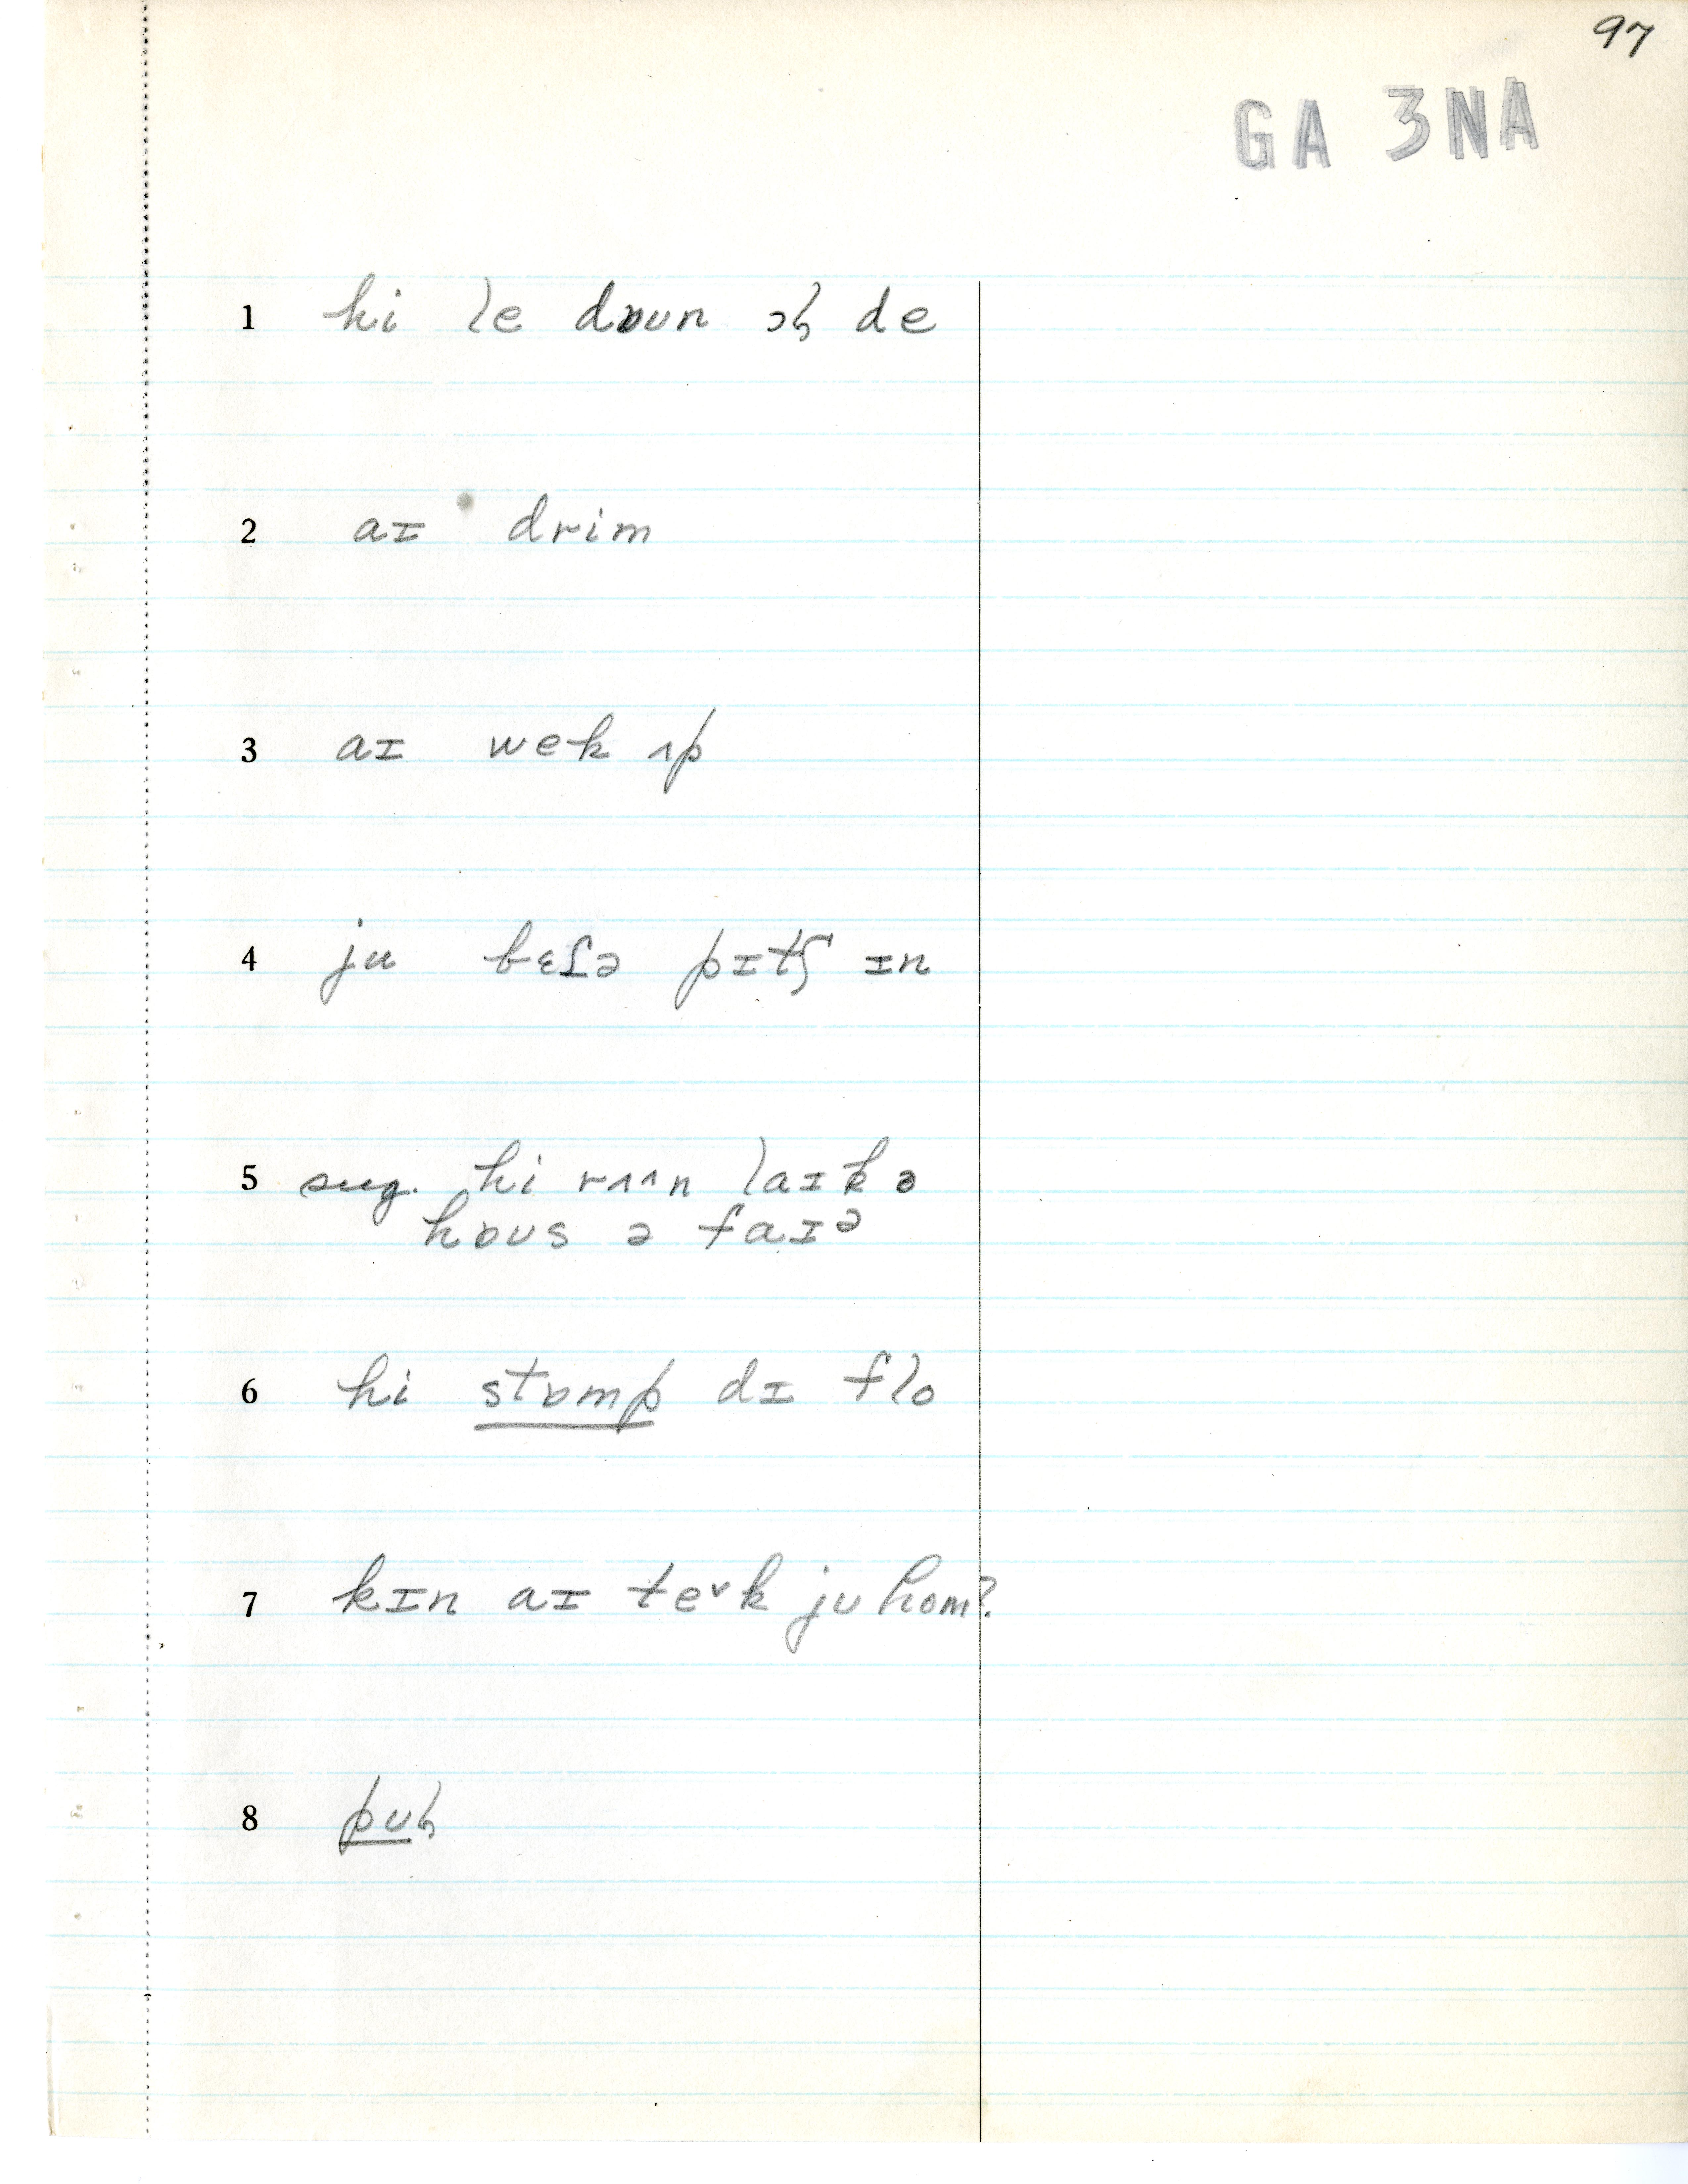 97
GA 3NA
1 hi le dɒun ɔɫ de
2 aɪ drim
3 aɪ wek ʌp
4 ju bɛʃə pɪtʃ ɪn
5 sug. hi rʌʌn laɪk ə
hɒus ə faɪᵊ
6 hi stɒmp dɪ flo
7 kɪn aɪ te˅k ju hom?
8 puɫ